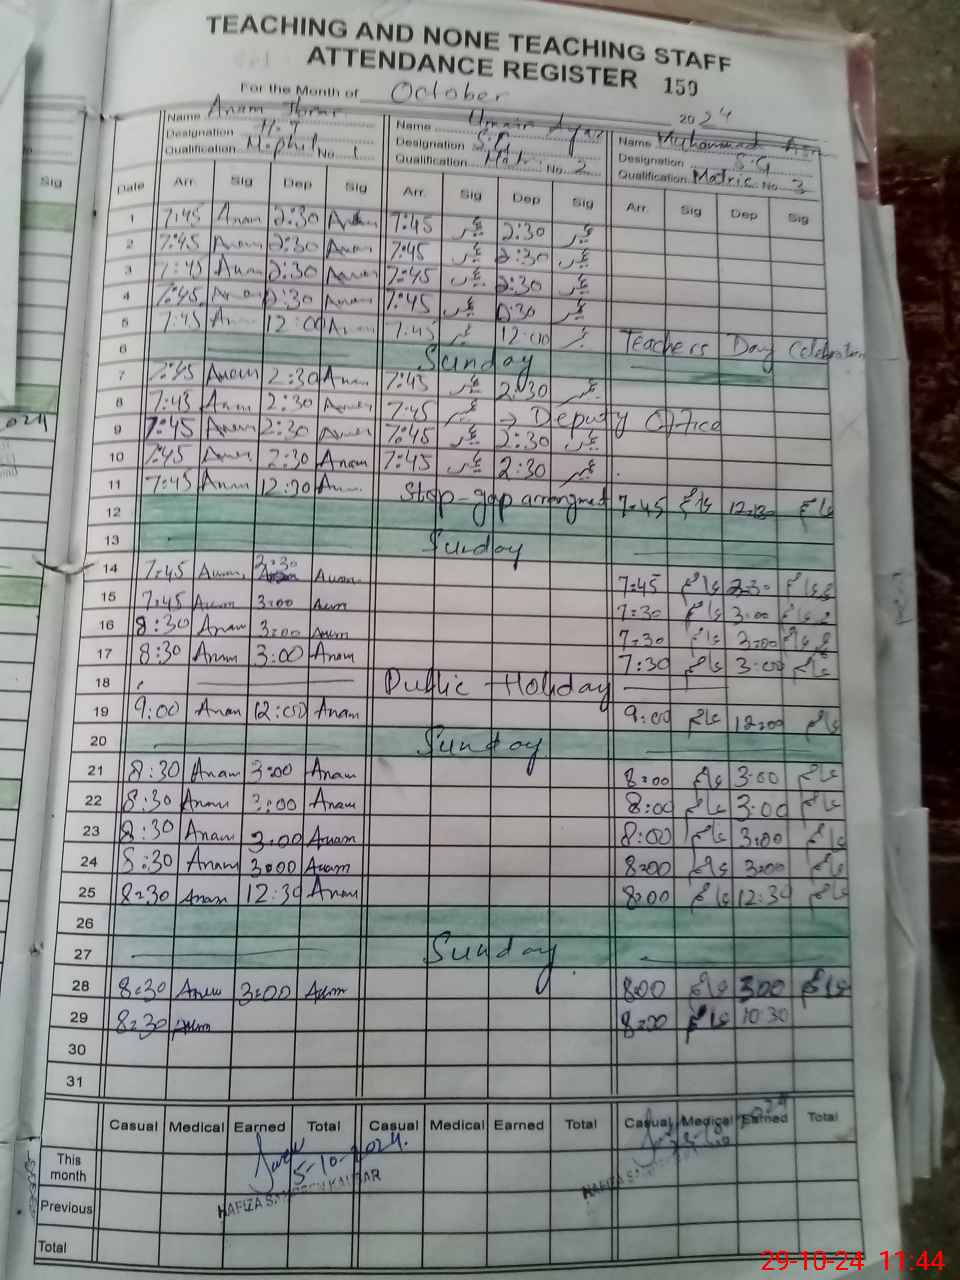 TEACHING AND NONE TEACHING STAFF
ATTENDANCE REGISTER 159
For the Month of October 2024
Name Anam
Designation
Qualification M.phil No. 1
Name Umair
Designation S.G
Qualification Matric No. 2
Name Muhammad
Designation S.G
Qualification Matric No. 3
Date Arr. Sig Dep Sig Arr. Sig Dep Sig Arr. Sig Dep Sig
1 7:45 Anam 2:30 Anam 7:45 عمیر 2:30 عمیر
2 7:45 Anam 2:30 Anam 7:45 عمیر 2:30 عمیر
3 7:45 Anam 2:30 Anam 7:45 عمیر 2:30 عمیر
4 7:45 Anam 2:30 Anam 7:45 عمیر 2:30 عمیر
5 7:45 Anam 12:00 Anam 7:45 عمیر 12:00 عمیر Teachers Day Celebration
6 Sunday
7 7:45 Anam 2:30 Anam 7:45 عمیر 2:30 عمیر
8 7:45 Anam 2:30 Anam 7:45 عمیر → Deputy Office
9 7:45 Anam 2:30 Anam 7:45 عمیر 2:30 عمیر
10 7:45 Anam 2:30 Anam 7:45 عمیر 2:30 عمیر
11 7:45 Anam 12:30 Anam Stop-gap arrangment 7:45 12:30
12
13 Sunday
14 7:45 Anam 2:30 Anam 7:45 2:30
15 7:45 Anam 3:00 Anam 7:30 3:00
16 8:30 Anam 3:00 Anam 7:30 3:00
17 8:30 Anam 3:00 Anam 7:30 3:00
18 Public Holiday
19 9:00 Anam 12:00 Anam 9:00 12:00
20 Sunday
21 8:30 Anam 3:00 Anam 8:00 3:00
22 8:30 Anam 3:00 Anam 8:00 3:00
23 8:30 Anam 3:00 Anam 8:00 3:00
24 8:30 Anam 3:00 Anam 8:00 3:00
25 8:30 Anam 12:30 Anam 8:00 12:30
26
27 Sunday
28 8:30 Anam 3:00 Anam 8:00 3:00
29 8:30 Anam 8:00 10:30
30
31
Casual Medical Earned Total Casual Medical Earned Total Casual Medical Earned Total
This month
5-10-2024.
HAFIZA
Previous
Total
Sig
Sig
29-10-24 11:44